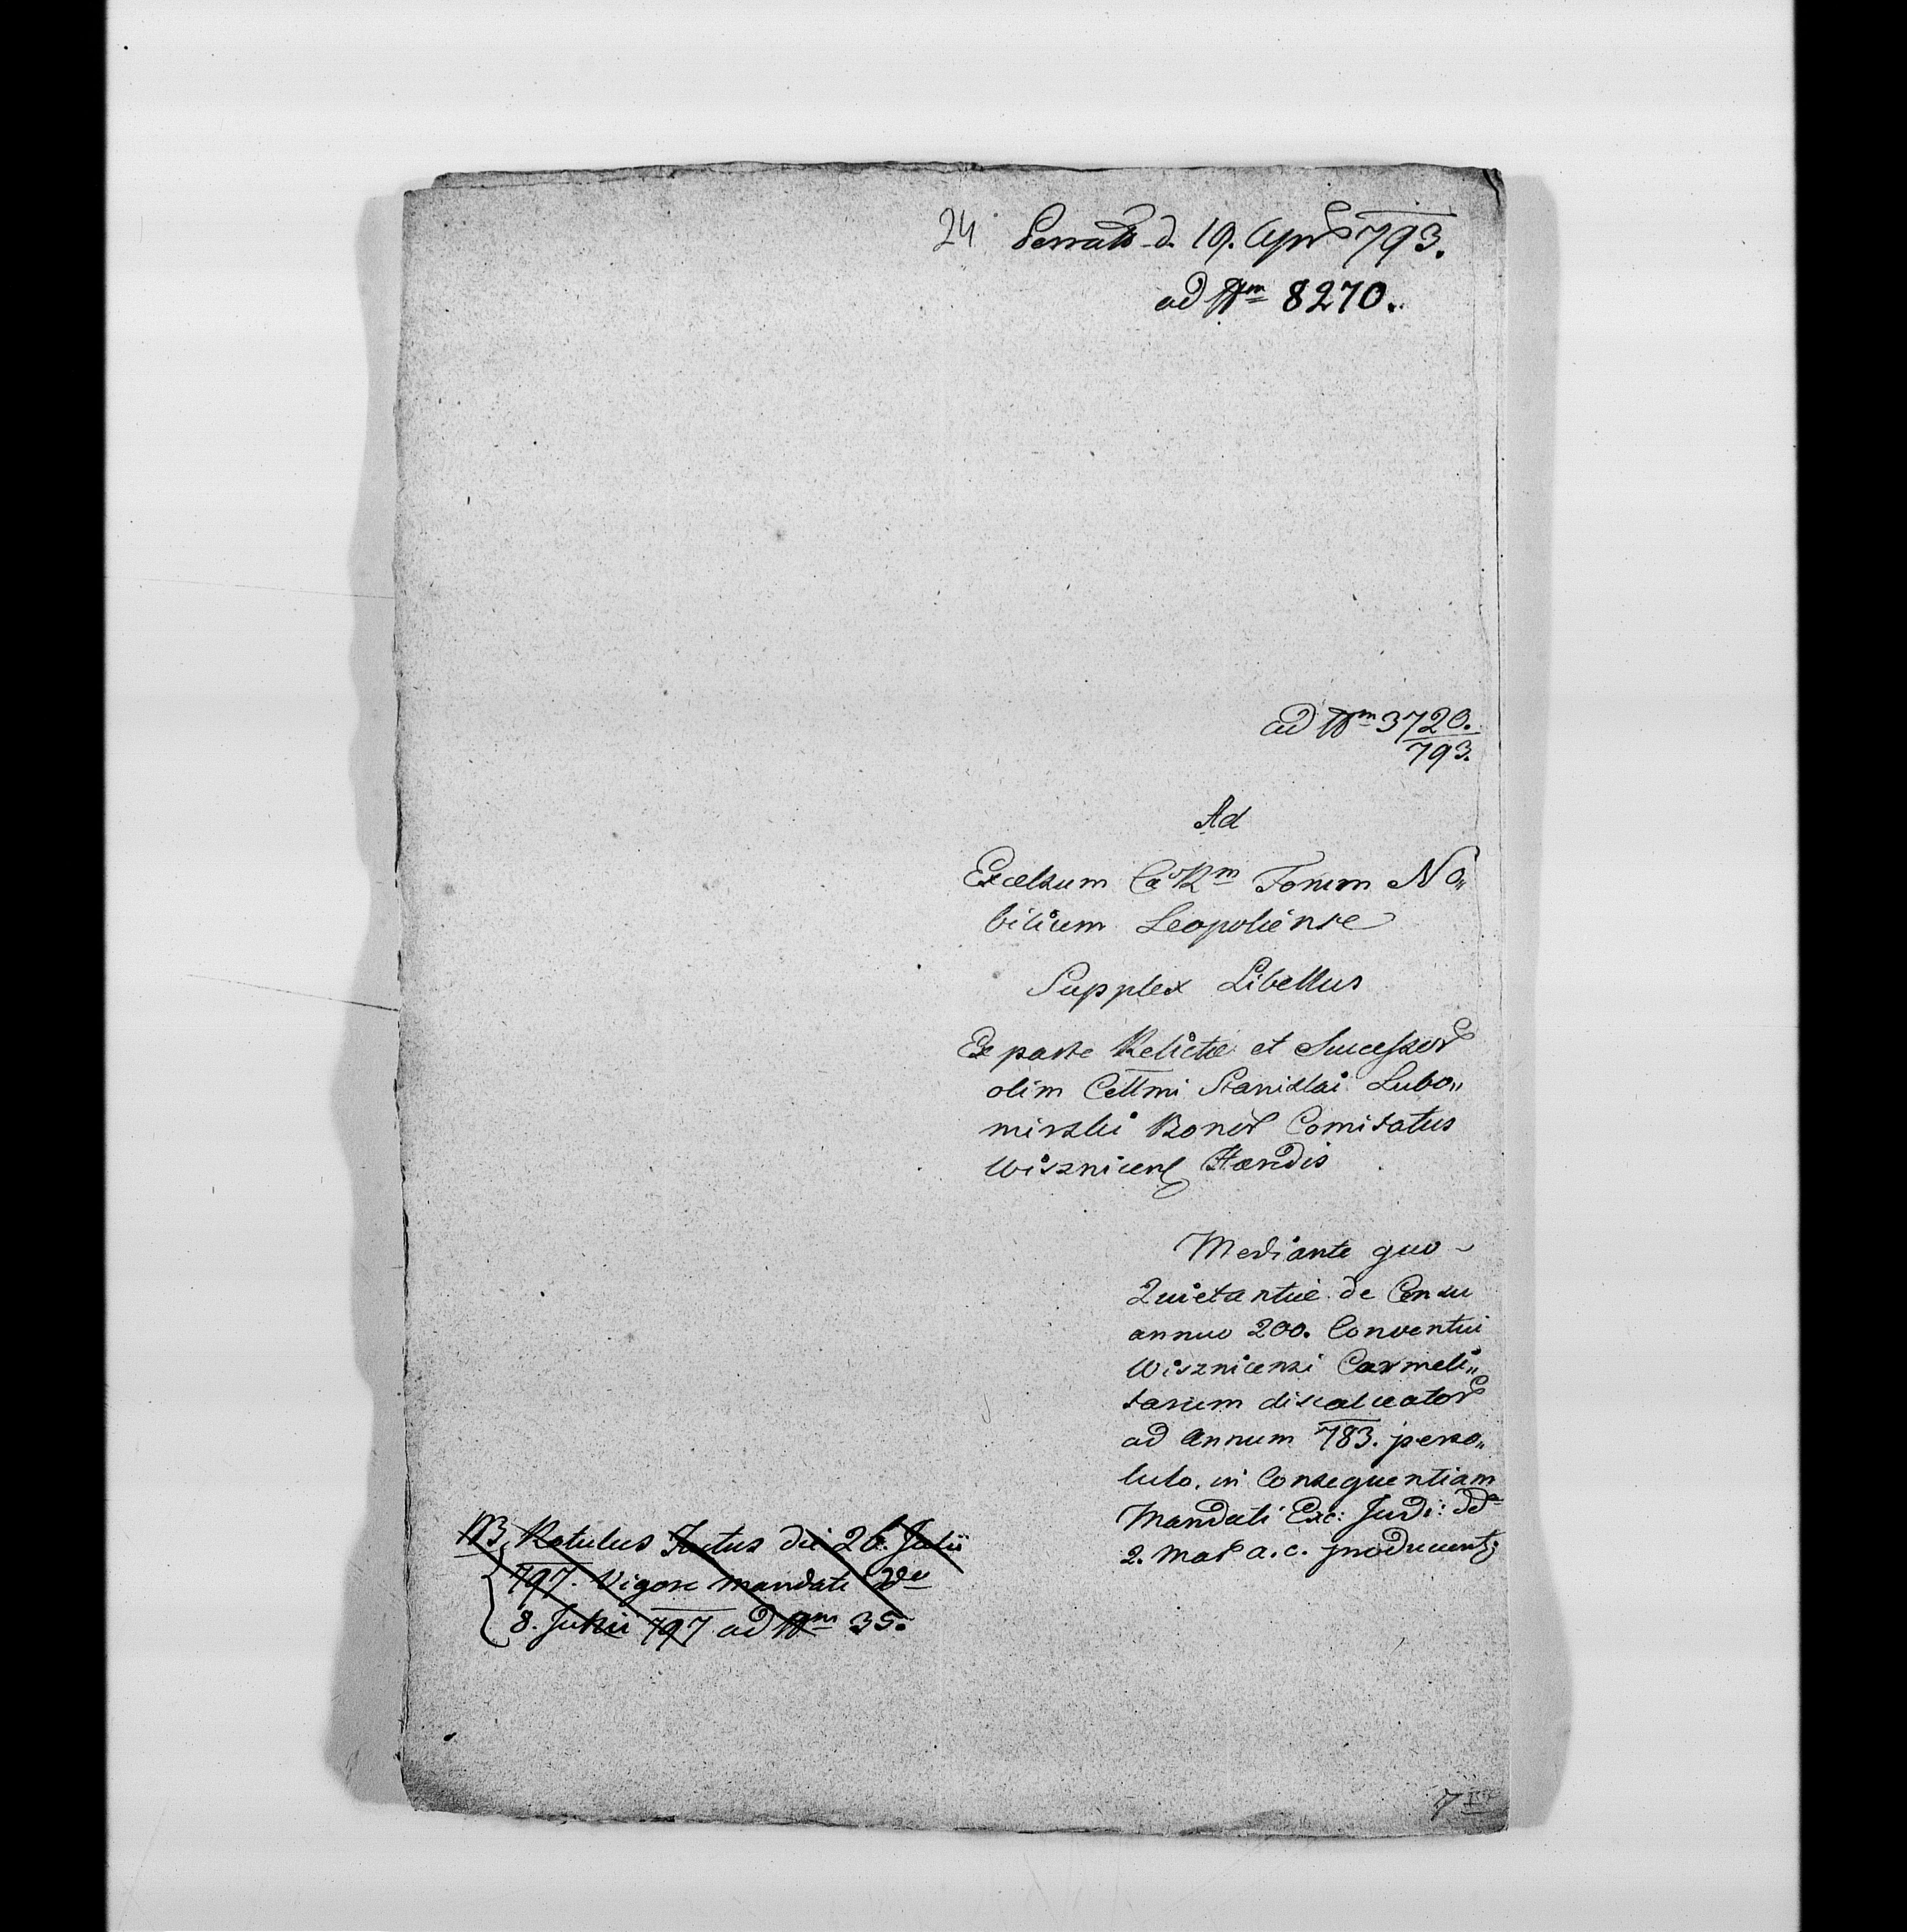 24 Serrato d. 19. Apr 793.
ad Nrm 8270.
ad Nrm 3720.
793.
Ad
Excelsum Cæs Rm Forum No„
bilium Leopoliense
Supplex Libellus
Ex parte Relictæ et Successor
olim Cellmi Stanislai Lubo„
mirski Bonor Comitatus
Wisznicens Hæredis
Mediante quo
Quietantiæ de Censu
annuo 200. Conventui
Wisznicensi Carmeli„
tarum discalceator
ad Annum 783. perso„
luto, in Consequentiam
Mandati Exc: Judi: dd
2. Mar a. c. producunt
NB. Rotulus Factus die 26. Julii
797. Vigore mandati dd
8. Junii 797 ad Nrm 35.